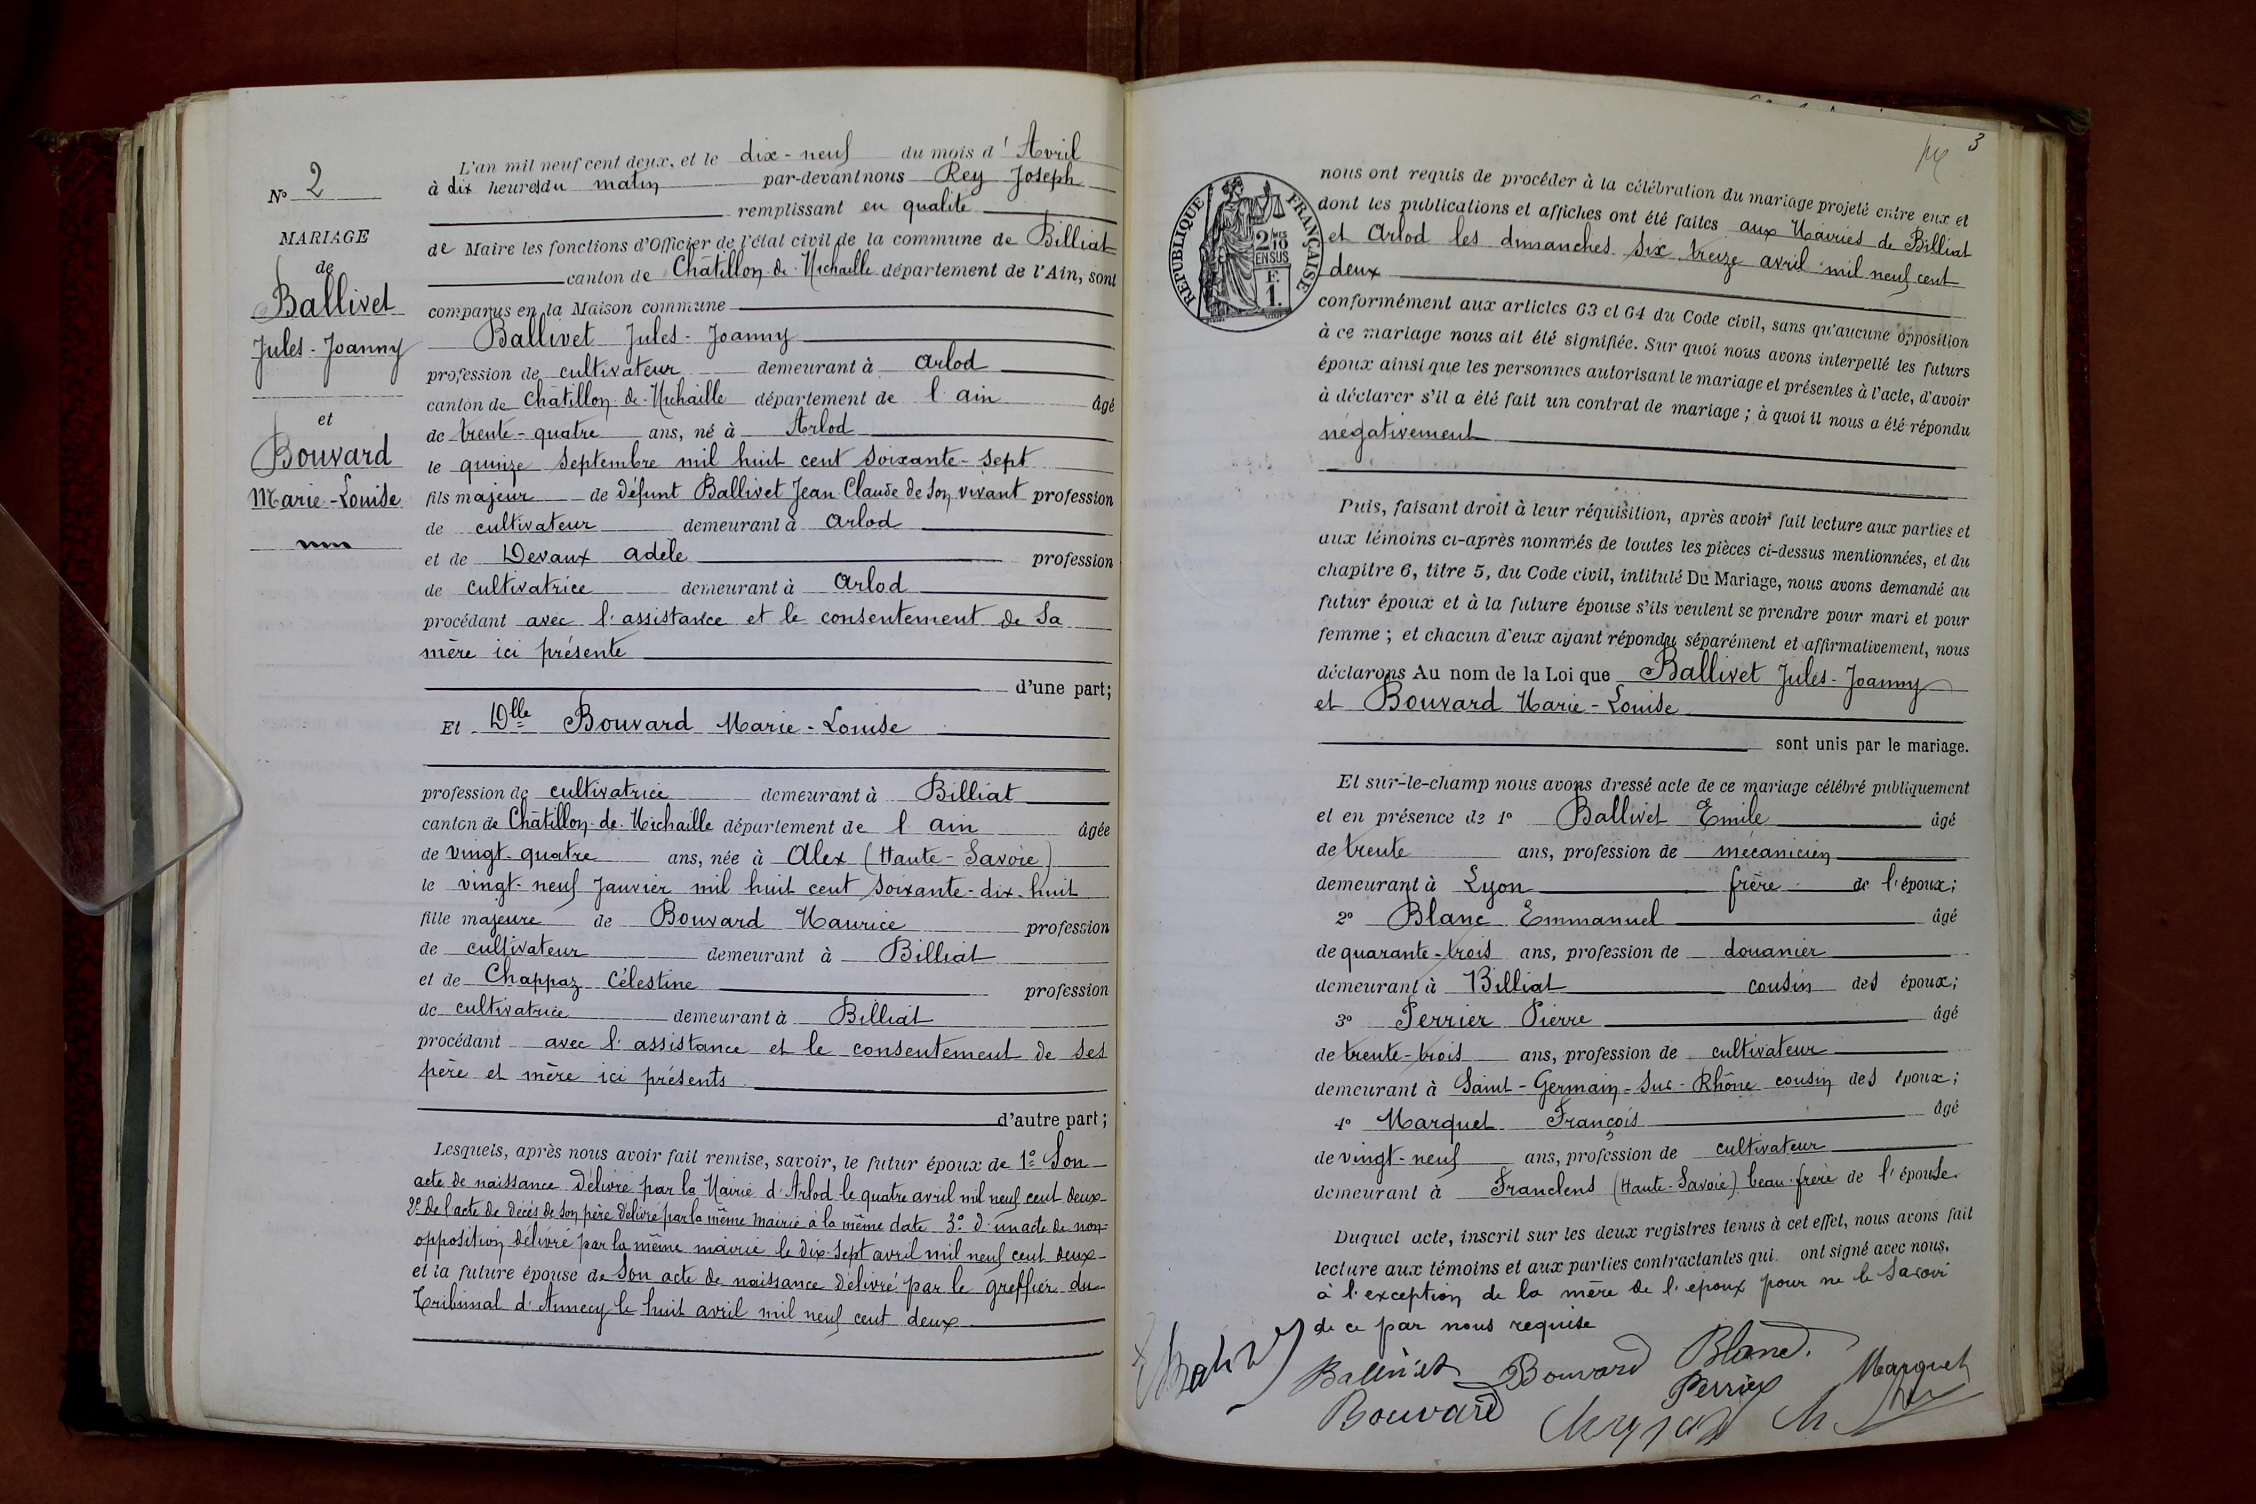 N° 2
MARIAGE
de
Ballivet
Jules-Joanny
et
Bouvard
Marie-Louise
L'an mil neuf cent deux, et le dix-neuf du mois d'Avril
à dix heures du matin par-devant nous Rey Joseph
remplissant en qualité
de Maire les fonctions d'Officier de l'état civil de la commune de Billiat
canton de Châtillon-de-Michaille département de l'Ain, sont
comparus en la Maison commune
Ballivet Jules-Joanny
profession de cultivateur demeurant à Arlod
canton de Châtillon-de-Michaille département de l'ain âgé
de trente-quatre ans, né à Arlod
le quinze Septembre mil huit cent soixante-sept
fils majeur de défunt Ballivet Jean Claude de son vivant profession
de cultivateur demeurant à Arlod
et de Devaux Adèle profession
de cultivatrice demeurant à Arlod
procédant avec l'assistance et le consentement de sa
mère ici présente
d'une part;
Et Dlle Bouvard Marie-Louise
profession de cultivatrice demeurant à Billiat
canton de Châtillon-de-Michaille département de l'ain âgée
de vingt-quatre ans, née à Alex (Haute-Savoie)
le vingt-neuf Janvier mil huit cent soixante-dix-huit
fille majeure de Bouvard Maurice profession
de cultivateur demeurant à Billiat
et de Chappaz Célestine profession
de cultivatrice demeurant à Billiat
procédant avec l'assistance et le consentement de ses
père et mère ici présents
d'autre part;
Lesquels, après nous avoir fait remise, savoir, le futur époux de 1° Son
acte de naissance délivré par la Mairie d'Arlod le quatre avril mil neuf cent deux-
2° de l'acte de décès de son père délivré par la même mairie à la même date 3° d'un acte de non-
opposition délivré par la même mairie le dix-sept avril mil neuf cent deux-
et la future épouse de Son acte de naissance délivré par le greffier du
Tribunal d'Annecy le huit avril mil neuf cent deux
3
RÉPUBLIQUE FRANÇAISE
2 MES 10
EN SUS
F.
1.
nous ont requis de procéder à la célébration du mariage projeté entre eux et
dont les publications et affiches ont été faites aux Mairies de Billiat
et Arlod les dimanches six, treize avril mil neuf cent
deux
conformément aux articles 63 et 64 du Code civil, sans qu'aucune opposition
à ce mariage nous ait été signifiée. Sur quoi nous avons interpellé les futurs
époux ainsi que les personnes autorisant le mariage et présentes à l'acte, d'avoir
à déclarer s'il a été fait un contrat de mariage; à quoi il nous a été répondu
négativement
Puis, faisant droit à leur réquisition, après avoir fait lecture aux parties et
aux témoins ci-après nommés de toutes les pièces ci-dessus mentionnées, et du
chapitre 6, titre 5, du Code civil, intitulé Du Mariage, nous avons demandé au
futur époux et à la future épouse s'ils veulent se prendre pour mari et pour
femme; et chacun d'eux ayant répondu séparément et affirmativement, nous
déclarons Au nom de la Loi que Ballivet Jules-Joanny
et Bouvard Marie-Louise
sont unis par le mariage.
Et sur-le-champ nous avons dressé acte de ce mariage célébré publiquement
et en présence de 1° Ballivet Emile âgé
de trente ans, profession de mécanicien
demeurant à Lyon frère de l'époux;
2° Blanc Emmanuel âgé
de quarante-trois ans, profession de douanier
demeurant à Billiat cousin des époux;
3° Perrier Pierre âgé
de trente-trois ans, profession de cultivateur
demeurant à Saint-Germain-sur-Rhône cousin des époux;
4° Marquet François âgé
de vingt-neuf ans, profession de cultivateur
demeurant à Franclens (Haute-Savoie) beau-frère de l'épouse.
Duquel acte, inscrit sur les deux registres tenus à cet effet, nous avons fait
lecture aux témoins et aux parties contractantes qui ont signé avec nous.
à l'exception de la mère de l'époux pour ne le savoir
de ce par nous requise
Ballivet Bouvard Blanc. Marquet
Perrier
Bouvard